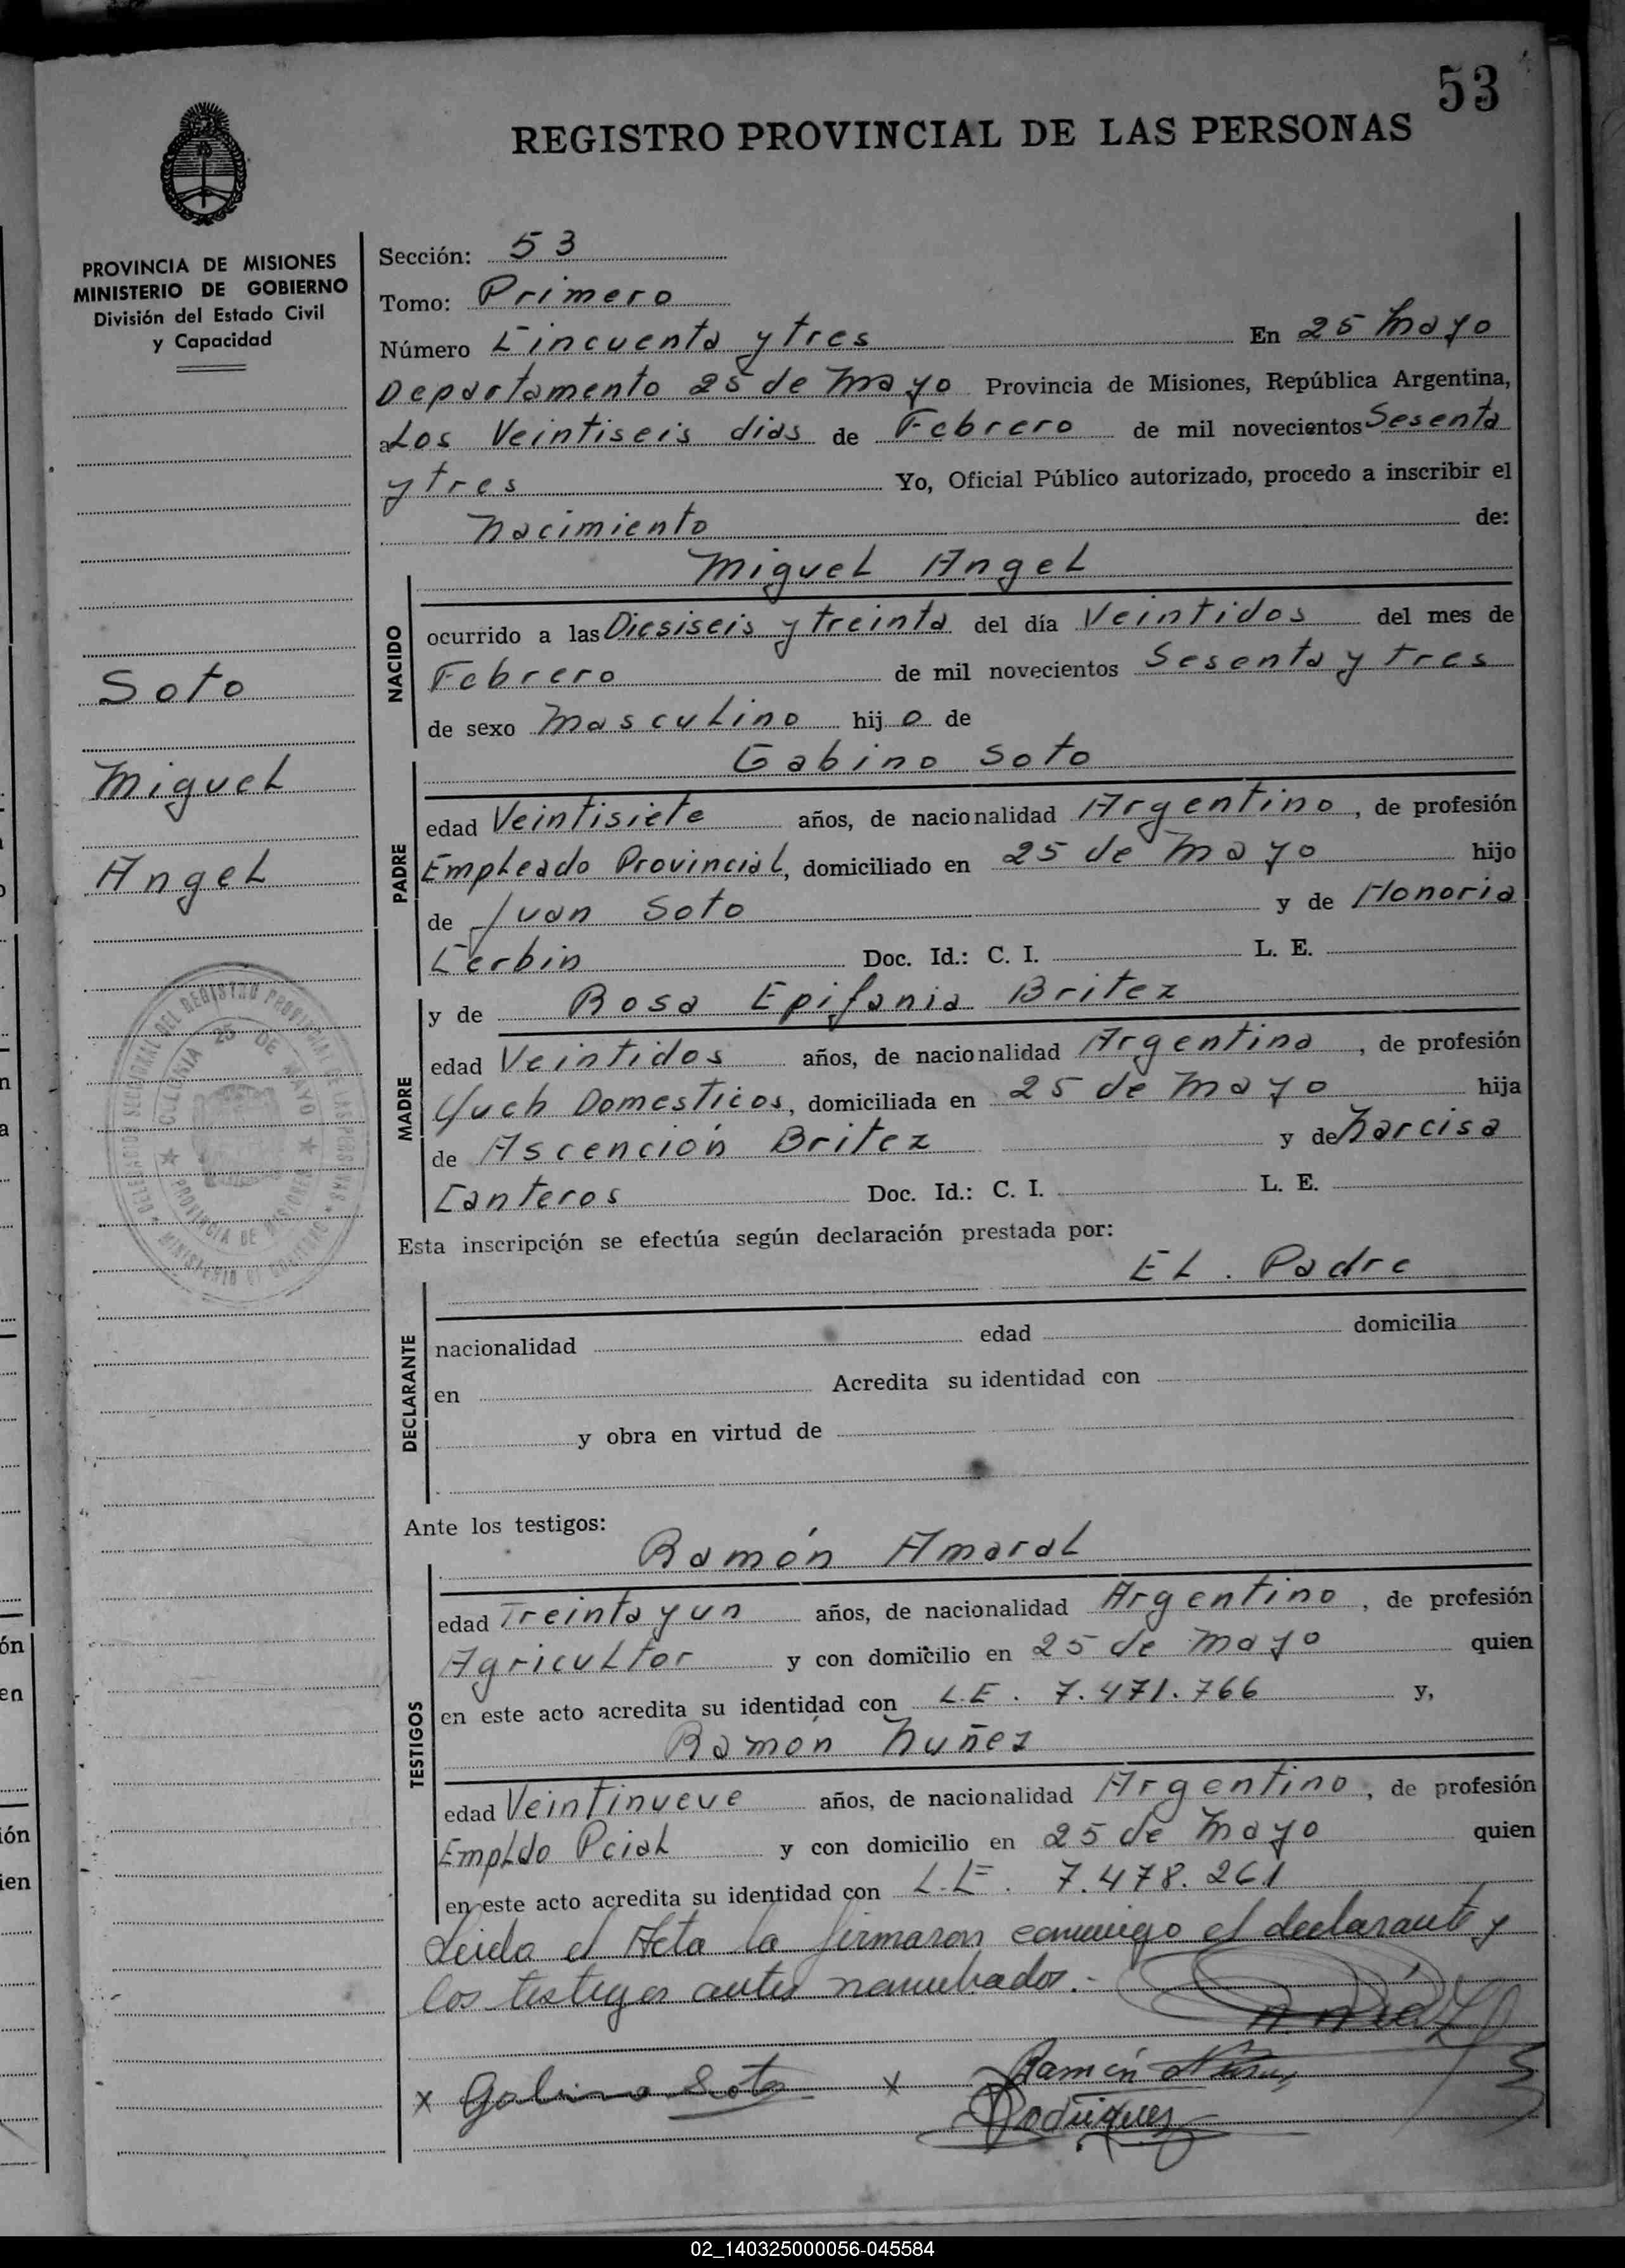 53
REGISTRO PROVINCIAL DE LAS PERSONAS
PROVINCIA DE MISIONES
MINISTERIO DE GOBIERNO
División del Estado Civil
y Capacidad
Soto
Miguel
Angel
DEL REGISTRO PROVINCIAL DE LAS PERSONAS
COLONIA 25 DE MAYO
PROVINCIA DE MISIONES
Sección: 53
Tomo: Primero
Número Cincuenta y tres En 25 Mayo
Departamento 25 de Mayo Provincia de Misiones, República Argentina,
a Los Veintiseis dias de Febrero de mil novecientos Sesenta
y tres Yo, Oficial Público autorizado, procedo a inscribir el
Nacimiento de:
Miguel Angel
NACIDO
ocurrido a las Diesiseis y treinta del día Veintidos del mes de
Febrero de mil novecientos Sesenta y tres
de sexo Masculino hijo de
Gabino Soto
PADRE
edad Veintisiete años, de nacionalidad Argentino, de profesión
Empleado Provincial, domiciliado en 25 de Mayo hijo
de Juan Soto y de Honoria
Cerbin Doc. Id.: C. I. L. E.
y de Rosa Epifania Britez
MADRE
edad Veintidos años, de nacionalidad Argentina, de profesión
Domesticos, domiciliada en 25 de Mayo hija
de Ascención Britez y de Narcisa
Canteros Doc. Id.: C. I. L. E.
Esta inscripción se efectúa según declaración prestada por:
EL. Padre
DECLARANTE
nacionalidad edad domicilia
en Acredita su identidad con
y obra en virtud de
Ante los testigos:
Ramón Amaral
TESTIGOS
edad Treinta y un años, de nacionalidad Argentino, de profesión
Agricultor y con domicilio en 25 de Mayo quien
en este acto acredita su identidad con L.E. 7.471.766 y,
Ramón Nuñez
edad Veintinueve años, de nacionalidad Argentino, de profesión
Empldo Pcial y con domicilio en 25 de Mayo quien
en este acto acredita su identidad con L.E. 7.478.261
Leida el Acta la firmaron conmigo el declarante y
los testigos antes nombrados.-
x Gabino Soto x Ramón
Rodriguez
02_140325000056-045584